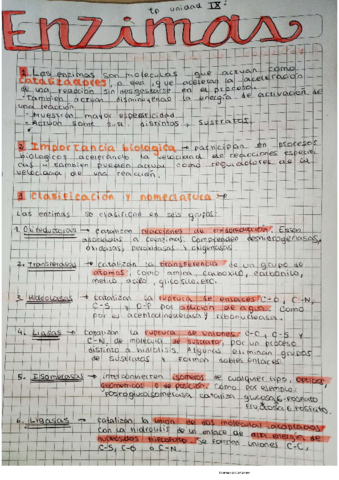 tp unidad IX:
Enzimas
1. Las enzimas son moléculas que actuan como
catalizadores, o sea, que aceleran la aceleración
de una reacción sin desgastarse en el proceso.
- También actuan disminuyendo la energía de activación de
una reacción.
- Muestran mayor especificidad
- Actuan sobre distintos sustratos.
2. Importancia biologica → participan en procesos
biologicos acelerando la velocidad de reacciones
y también pueden actuar como reguladores de la
velocidad de una reacción.
3. Clasificación y nomenclatura →
Las enzimas se clasifican en seis grupos:
1. → catalizan reacciones de
asociadas a coenzimas. Comprenden deshidrogenasas,
oxidasas, peroxidasas y oxigenasas
2. Transferasas → catalizan la transferencia de un grupo de
atomos, como amina, carboxilo, carbonilo,
metilo, acilo, glicosilo, etc.
3. Hidrolasas → catalizan la ruptura de enlaces C-O, C-N,
C-S y O-P por adición de agua. Como
por ej acetilcolinesterasa y ribonucleasa.
4. Liasas → catalizan la ruptura de uniones C-C, C-S y
C-N, de molecula de sustrato, por un proceso
distinto a hidrolisis. Algunas eliminan grupos
de sustratos y forman dobles enlaces.
5. Isomerasas → interconvierten isomeros de cualquier tipo, opticos,
geometricos o de posición, como por ejemplo.
fosfoglucoisomerasa cataliza glucosa-6-fosfato
Fructosa-6-fosfato.
6. Ligasas → catalizan la union de dos moleculas, acopladas
con la hidrolisis de un enlace de alta energia de
nucleosidos trifosfato. Se forman uniones C-C,
C-S, C-O o C-N.